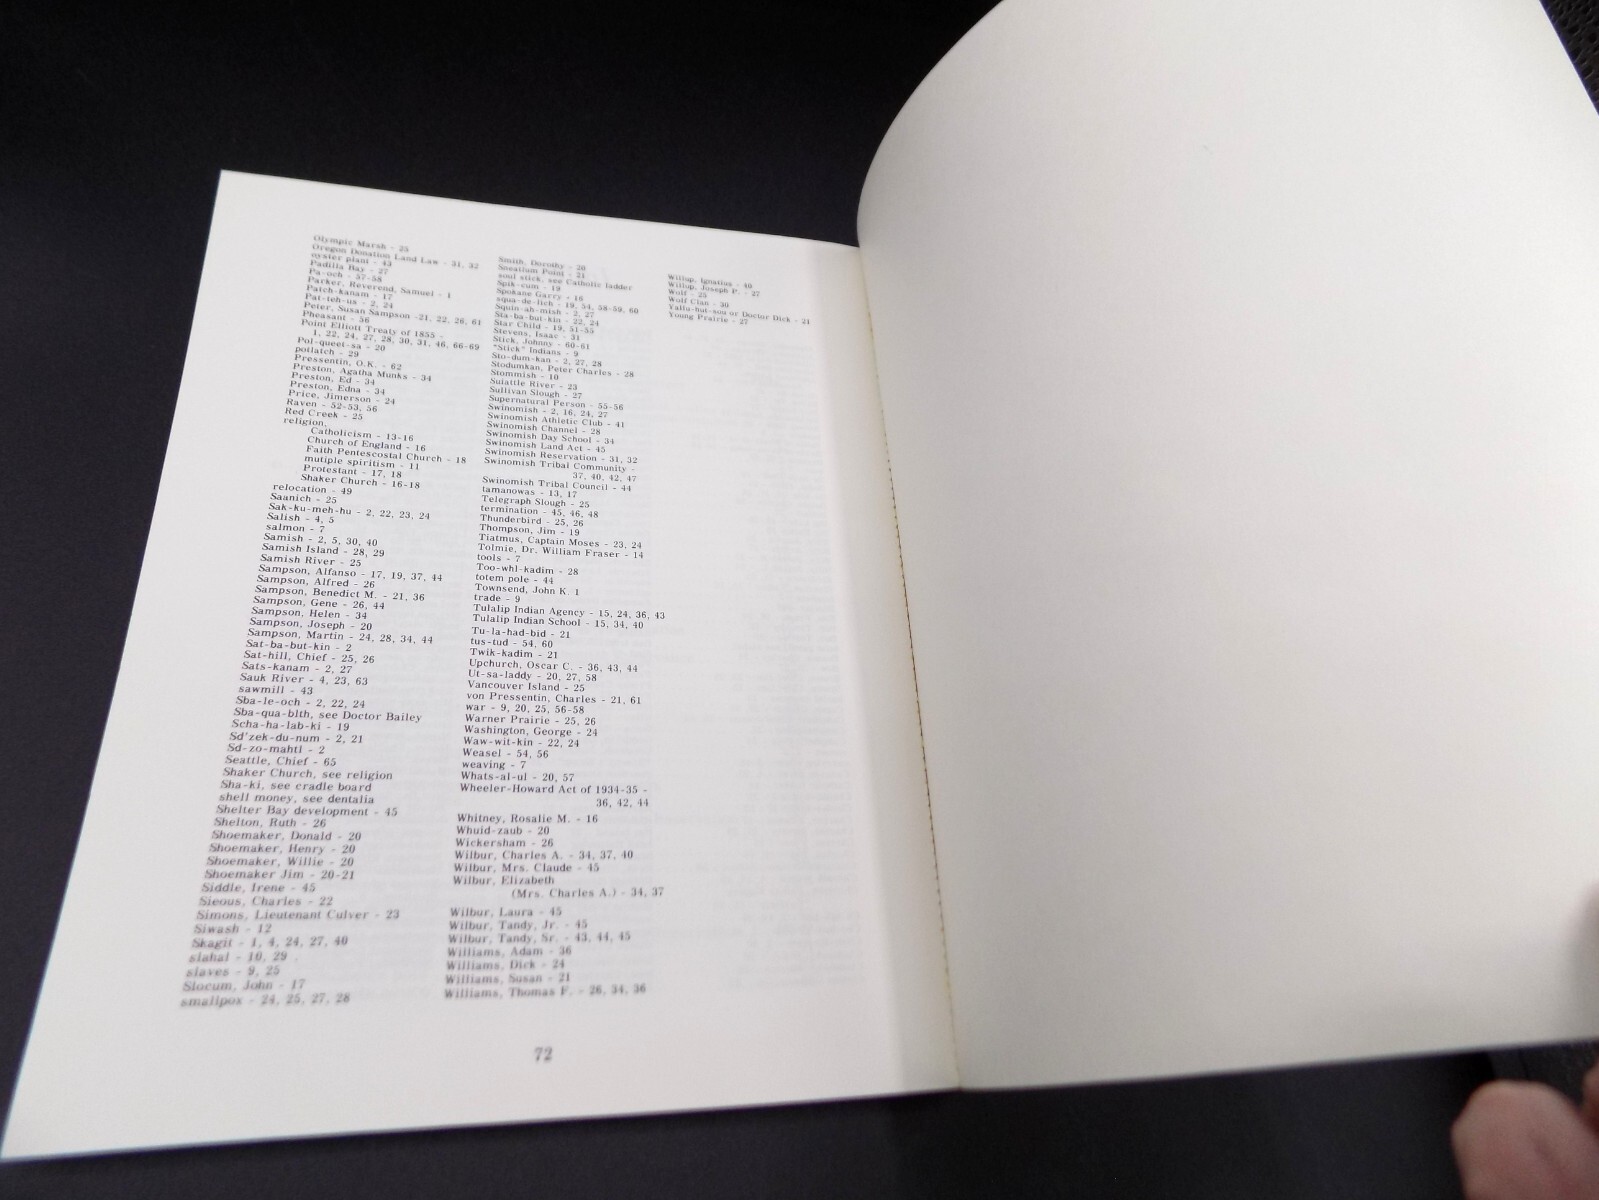 Olympic Marsh - 25
Oregon Donation Land Law - 31, 32
oyster plant - 43
Padilla Bay - 27
Pa-och - 57-58
Parker, Reverend, Samuel - 1
Patch-kanam - 17
Pat-teh-us - 2, 24
Peter, Susan Sampson -21, 22, 26, 61
Pheasant - 56
Point Elliott Treaty of 1855 -
1, 22, 24, 27, 28, 30, 31, 46, 66-69
Pol-queet-sa - 20
potlatch - 29
Pressentin, O.K. - 62
Preston, Agatha Munks - 34
Preston, Ed - 34
Preston, Edna - 34
Price, Jimerson - 24
Raven - 52-53, 56
Red Creek - 25
religion,
Catholicism - 13-16
Church of England - 16
Faith Pentescostal Church - 18
mutiple spiritism - 11
Protestant - 17, 18
Shaker Church - 16-18
relocation - 49
Saanich - 25
Sak-ku-meh-hu - 2, 22, 23, 24
Salish - 4, 5
salmon - 7
Samish - 2, 5, 30, 40
Samish Island - 28, 29
Samish River - 25
Sampson, Alfanso - 17, 19, 37, 44
Sampson, Alfred - 26
Sampson, Benedict M. - 21, 36
Sampson, Gene - 26, 44
Sampson, Helen - 34
Sampson, Joseph - 20
Sampson, Martin - 24, 28, 34, 44
Sat-ba-but-kin - 2
Sat-hill, Chief - 25, 26
Sats-kanam - 2, 27
Sauk River - 4, 23, 63
sawmill - 43
Sba-le-och - 2, 22, 24
Sba-qua-blth, see Doctor Bailey
Scha-ha-lab-ki - 19
Sd'zek-du-num - 2, 21
Sd-zo-mahtl - 2
Seattle, Chief - 65
Shaker Church, see religion
Sha-ki, see cradle board
shell money, see dentalia
Shelter Bay development - 45
Shelton, Ruth - 26
Shoemaker, Donald - 20
Shoemaker, Henry - 20
Shoemaker, Willie - 20
Shoemaker Jim - 20-21
Siddle, Irene - 45
Sieous, Charles - 22
Simons, Lieutenant Culver - 23
Siwash - 12
Skagit - 1, 4, 24, 27, 40
slahal - 10, 29
slaves - 9, 25
Slocum, John - 17
smallpox - 24, 25, 27, 28
Smith, Dorothy - 20
Sneatlum Point - 21
soul stick, see Catholic ladder
Spik-cum - 19
Spokane Garry - 16
squa-de-lich - 19, 54, 58-59, 60
Squin-ah-mish - 2, 27
Sta-ba-but-kin - 22, 24
Star Child - 19, 51-55
Stevens, Isaac - 31
Stick, Johnny - 60-61
"Stick" Indians - 9
Sto-dum-kan - 2, 27, 28
Stodumkan, Peter Charles - 28
Stommish - 10
Suiattle River - 23
Sullivan Slough - 27
Supernatural Person - 55-56
Swinomish - 2, 16, 24, 27
Swinomish Athletic Club - 41
Swinomish Channel - 28
Swinomish Day School - 34
Swinomish Land Act - 45
Swinomish Reservation - 31, 32
Swinomish Tribal Community -
37, 40, 42, 47
Swinomish Tribal Council - 44
tamanowas - 13, 17
Telegraph Slough - 25
termination - 45, 46, 48
Thunderbird - 25, 26
Thompson, Jim - 19
Tiatmus, Captain Moses - 23, 24
Tolmie, Dr. William Fraser - 14
tools - 7
Too-whl-kadim - 28
totem pole - 44
Townsend, John K. 1
trade - 9
Tulalip Indian Agency - 15, 24, 36, 43
Tulalip Indian School - 15, 34, 40
Tu-la-had-bid - 21
tus-tud - 54, 60
Twik-kadim - 21
Upchurch, Oscar C. - 36, 43, 44
Ut-sa-laddy - 20, 27, 58
Vancouver Island - 25
von Pressentin, Charles - 21, 61
war - 9, 20, 25, 56-58
Warner Prairie - 25, 26
Washington, George - 24
Waw-wit-kin - 22, 24
Weasel - 54, 56
weaving - 7
Whats-al-ul - 20, 57
Wheeler-Howard Act of 1934-35 -
36, 42, 44
Whitney, Rosalie M. - 16
Whuid-zaub - 20
Wickersham - 26
Wilbur, Charles A. - 34, 37, 40
Wilbur, Mrs. Claude - 45
Wilbur, Elizabeth
(Mrs. Charles A.) - 34, 37
Wilbur, Laura - 45
Wilbur, Tandy, Jr. - 45
Wilbur, Tandy, Sr. - 43, 44, 45
Williams, Adam - 36
Williams, Dick - 24
Williams, Susan - 21
Williams, Thomas F. - 26, 34, 36
Willup, Ignatius - 40
Willup, Joseph P. - 27
Wolf - 25
Wolf Clan - 30
Yallu-hut-sou or Doctor Dick - 21
Young Prairie - 27
72